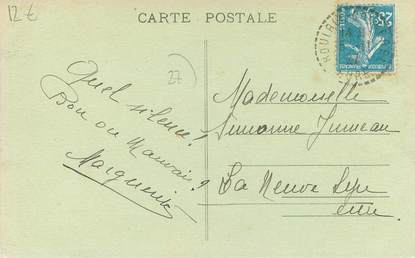 12 €
CARTE POSTALE
27
25c
Quel silence!
Bon ou Mauvais?
Marguerite
Mademoiselle
Simonne Juneau
La Neuve Lyre
Eure